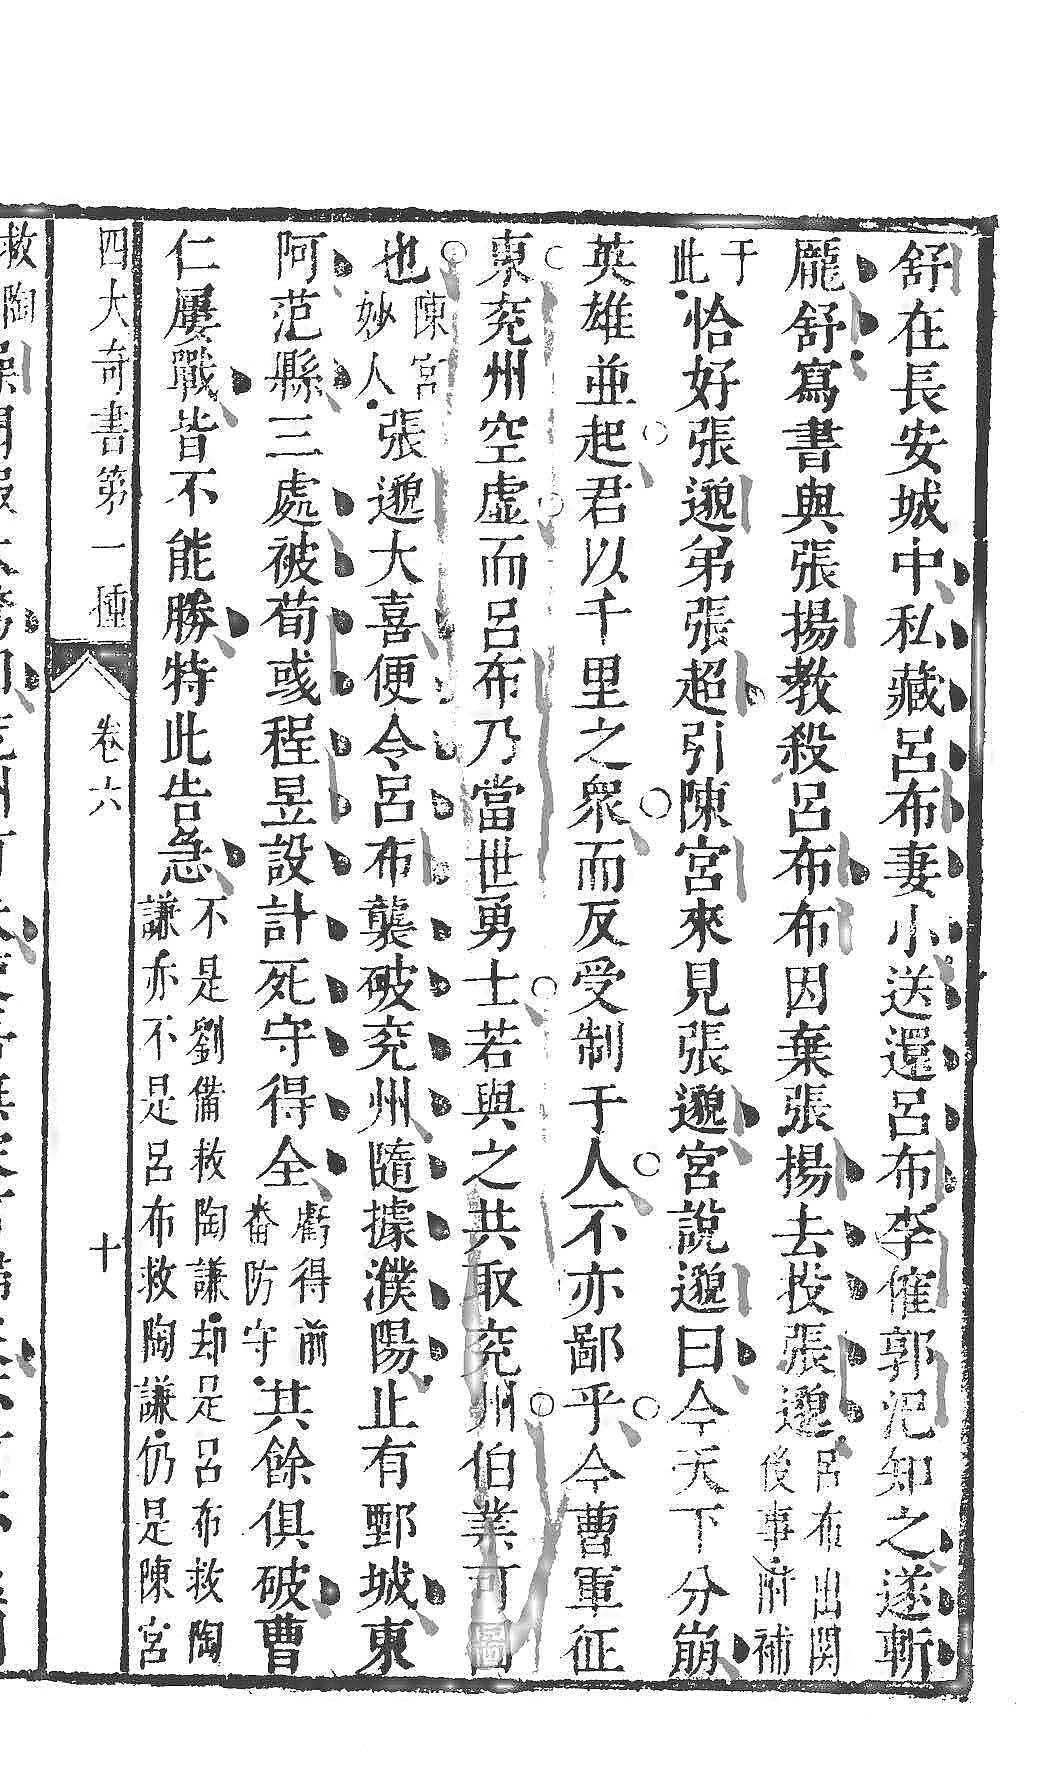 舒在長安城中私藏呂布妻小送還呂布李傕郭汜知之遂斬
龐舒寫書與張揚教殺呂布布因棄張揚去投張邈呂布出關後事附補
于此恰好張邈弟張超引陳宮來見張邈宮說邈曰今天下分崩
英雄並起君以千里之衆而反受制于人不亦鄙乎今曹軍征
東兖州空虛而呂布乃當世勇士若與之共取兖州伯業可圖
也陳宮妙人張邈大喜便令呂布襲破兖州隨據濮陽止有鄄城東
阿范縣三處被荀彧程昱設計死守得全虧得前番防守其餘俱破曹
仁屢戰皆不能勝特此告急不是劉備救陶謙却是呂布救陶謙亦不是呂布救陶謙仍是陳宮
四大奇書第一種 卷六 十
救陶